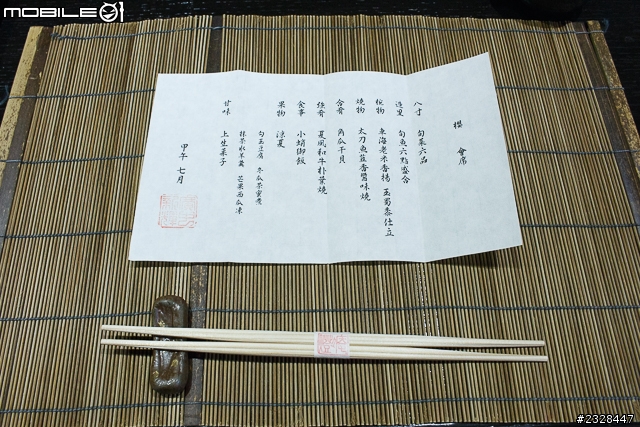 MOBILE01
櫻 會席
八寸 旬菜六品
造里 旬魚六點盛合
椀物 東海老米香揚 玉蜀黍仕立
燒物 太刀魚韮香醬味燒
合肴 角瓜干貝
強肴 夏風和牛朴葉燒
食事 小蛸御飯
果物 涼夏
甘味 上生菓子
抹茶水羊羹 芒果西瓜凍
甲午 七月
#2328447